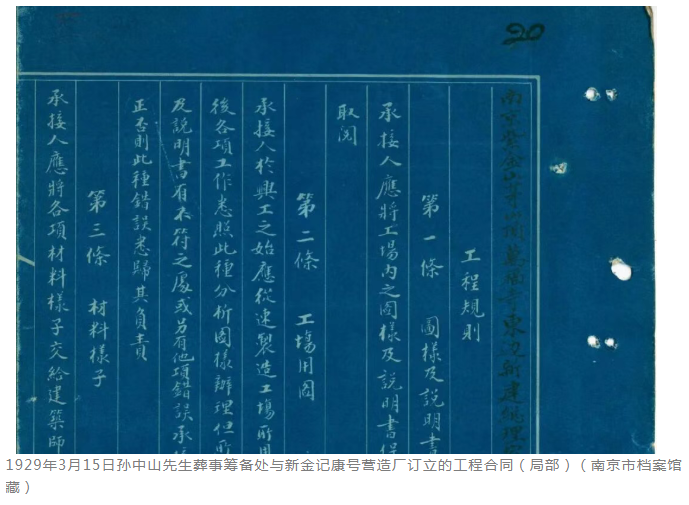 20
南京紫金山茅山頂萬福寺東边新建總理
工程規則
第一條 圖樣及說明書
承接人應將工場內之圖樣及說明書保
取閱
第二條 工塲用圖
承接人於興工之始應從速製造工塲所用
後各項工作悉照此種分析圖樣辦理但所
及說明書有不符之處或另有他項錯誤承
正否則此種錯誤悉歸其負責
第三條 材料樣子
承接人應將各項材料樣子交給建築師
1929年3月15日孙中山先生葬事筹备处与新金记康号营造厂订立的工程合同（局部）（南京市档案馆
藏）